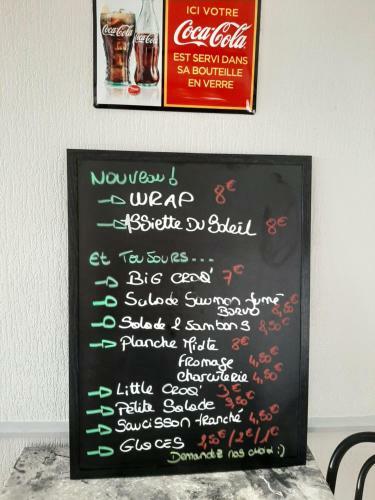 ICI VOTRE
Coca-Cola
EST SERVI DANS
SA BOUTEILLE
EN VERRE
Coca-Cola
Coca-Cola
Nouveau!
WRAP 8€
Assiette Du Soleil 8€
Et Toujours...
Big Croq' 7€
Salade Saumon fumé
8,50€
Salade 2 Jambons 8,50€
Planche Mixte 8€
fromage 4,50€
charcuterie 4,50€
Little Croq' 3€
Petite Salade 3,50€
Saucisson tranché 4,50€
GLACES 2,50€/2€/1€
Demandez nos choix :)